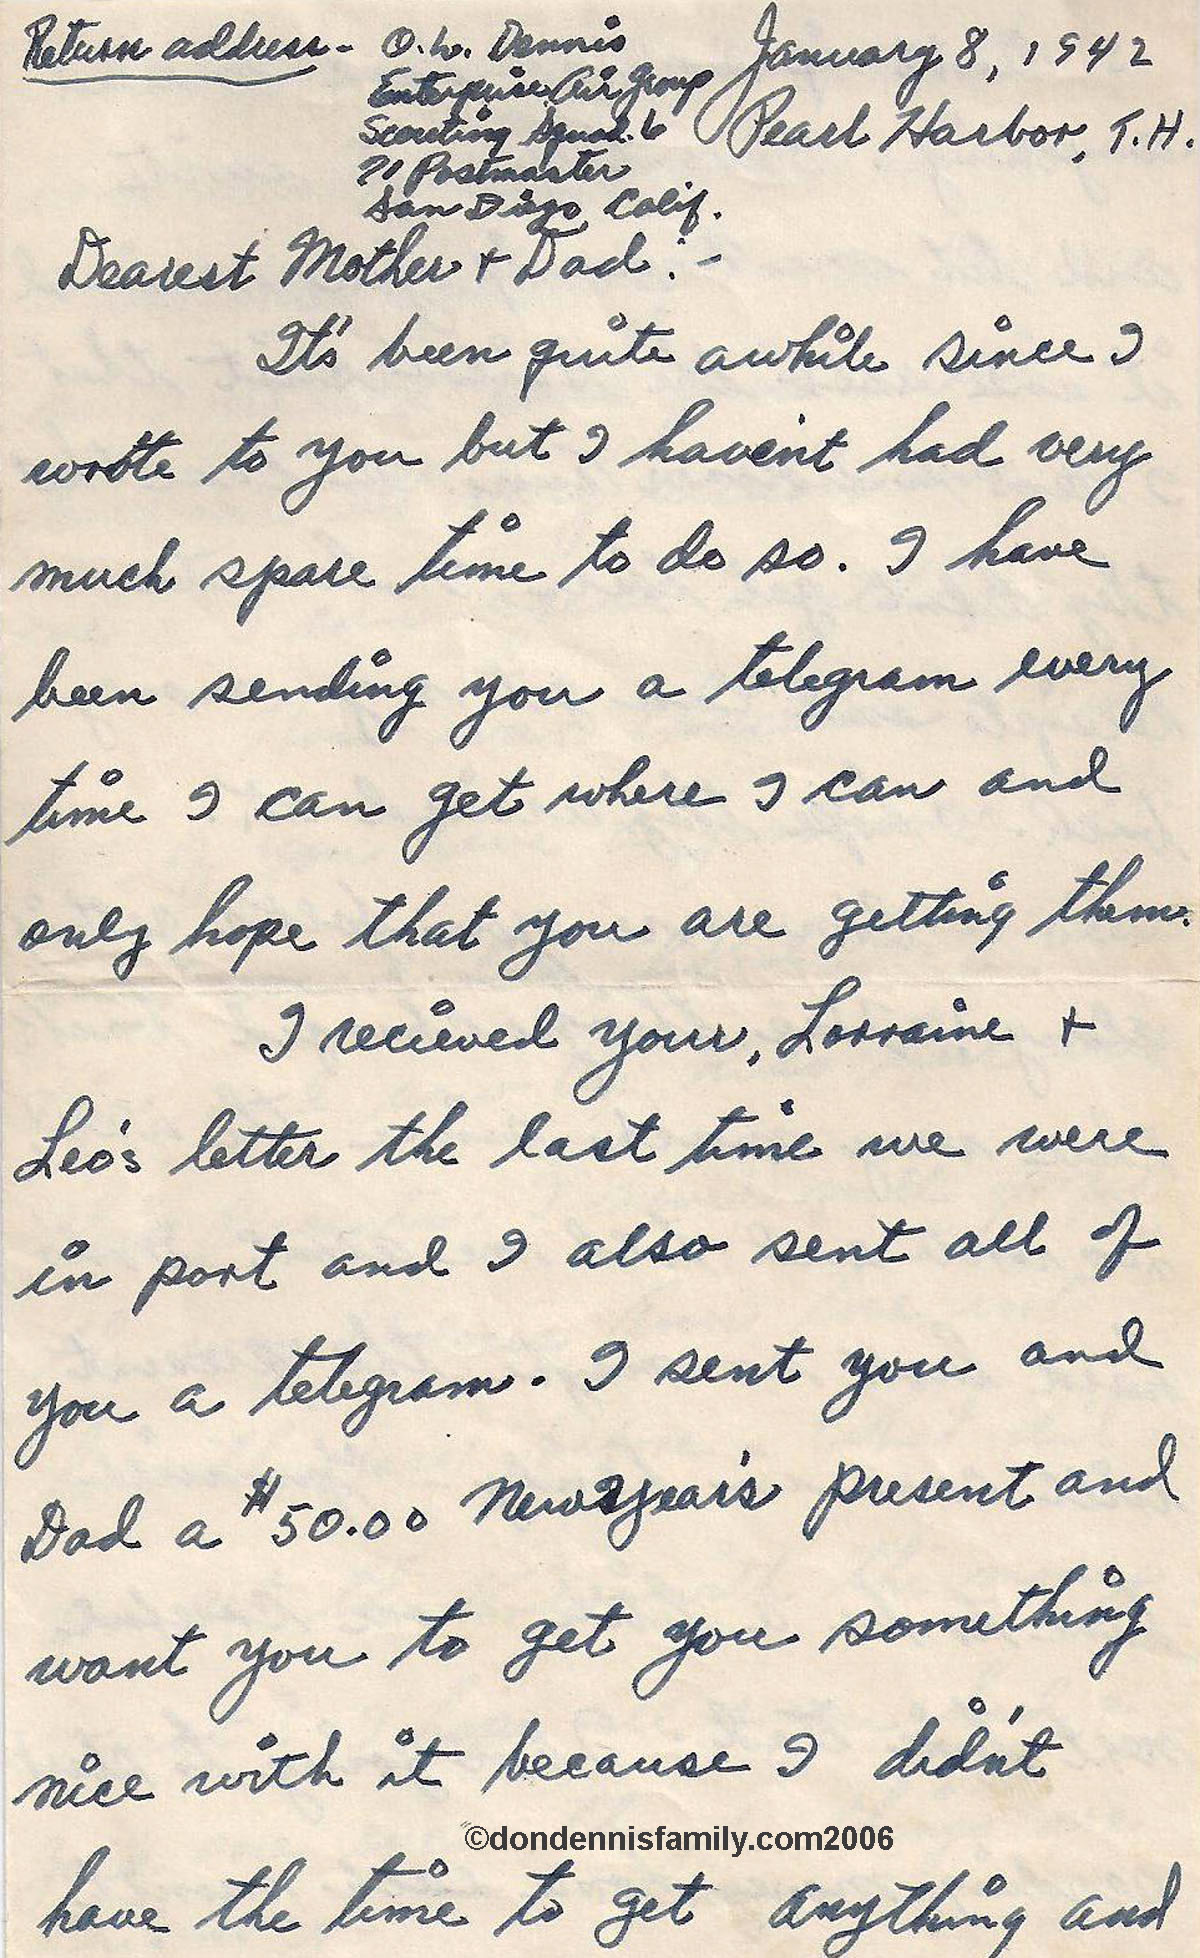 Return address - O.W. Dennis
Enterprise Air Group
Scouting Squad. 6
℅ Postmaster
San Diego, Calif.
January 8, 1942
Pearl Harbor, T.H.
Dearest Mother + Dad:-
It's been quite awhile since I
wrote to you but I haven't had very
much spare time to do so. I have
been sending you a telegram every
time I can get where I can and
only hope that you are getting them.
I recieved your, Lorraine +
Leo's letter the last time we were
in port and I also sent all of
you a telegram. I sent you and
Dad a $50.00 New Year's present and
want you to get you something
nice with it because I didn't
©dondennisfamily.com2006
have the time to get anything and